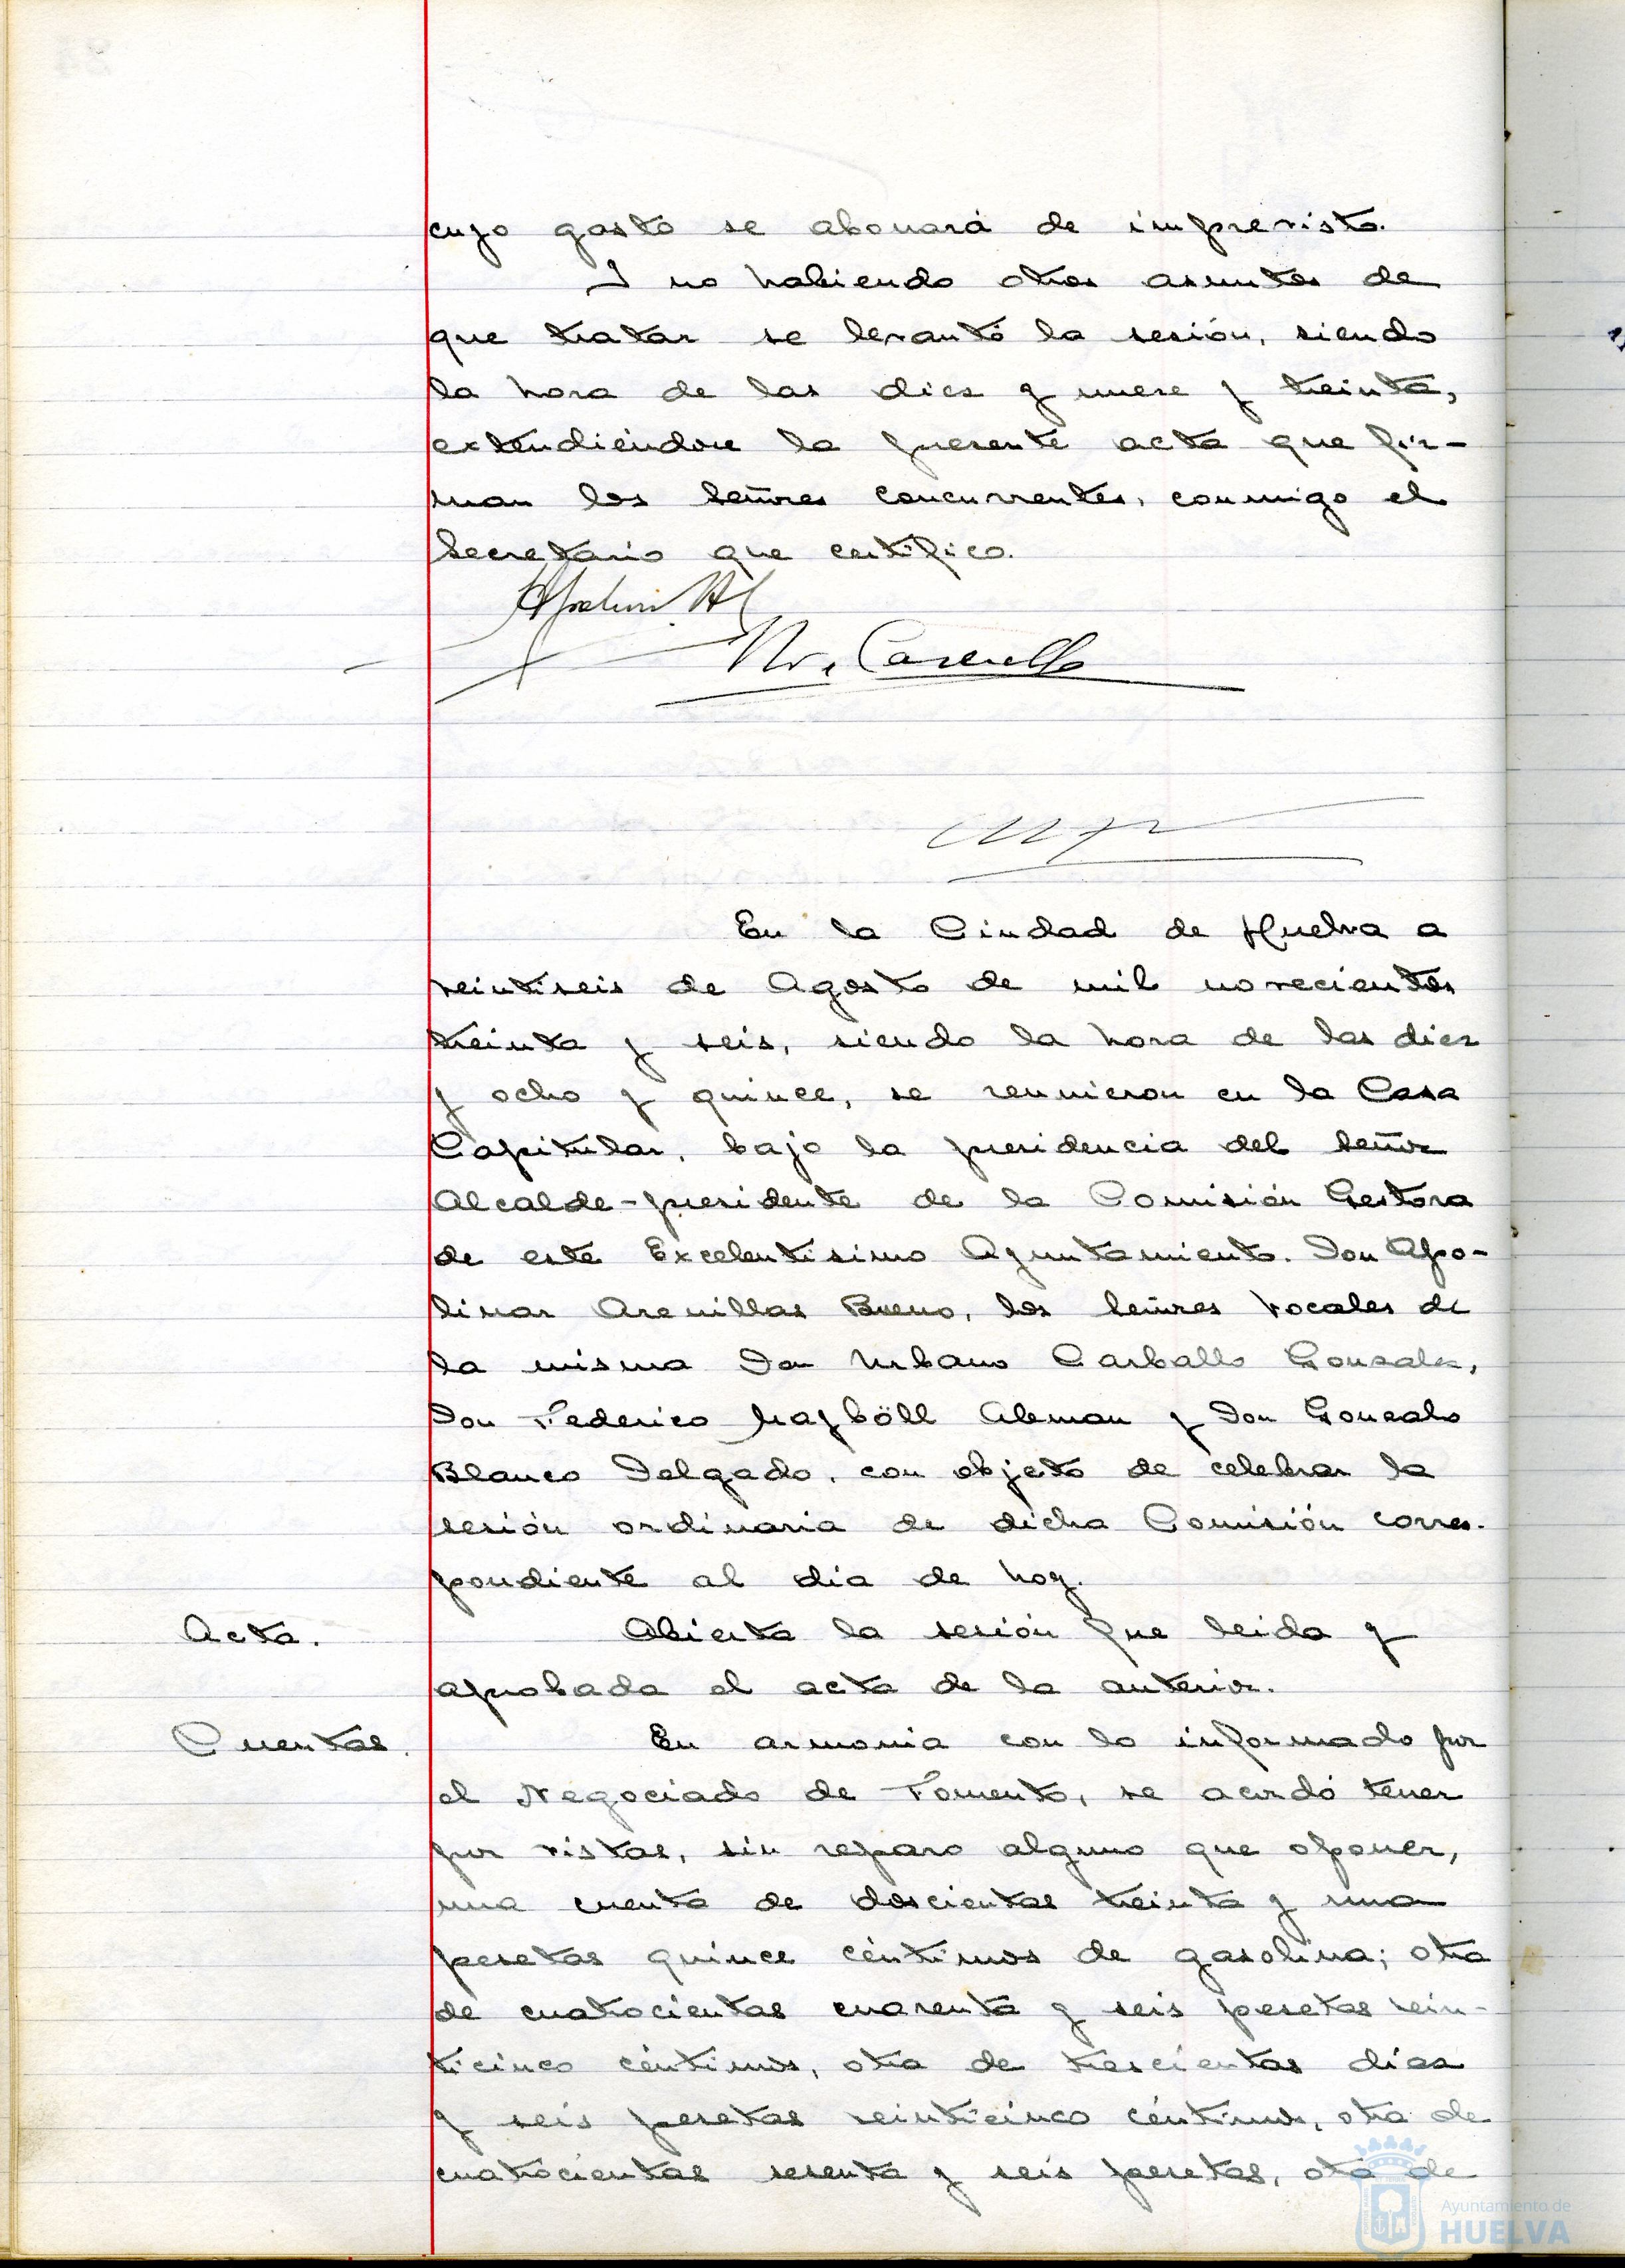 cuyo gasto se abonará de imprevisto.
Y no habiendo otros asuntos de
que tratar se levantó la sesión, siendo
la hora de las diez y nueve y treinta,
extendiéndose la presente acta que fir-
man los Señores concurrentes, conmigo el
Secretario que certifico.
En la Ciudad de Huelva a
veintiseis de Agosto de mil novecientos
treinta y seis, siendo la hora de las diez
y ocho y quince, se reunieron en la Casa
Capitular, bajo la presidencia del Señor
Alcalde-presidente de la Comisión Gestora
de este Excelentísimo Ayuntamiento. Don Apo-
linar Arenillas Bueno, los Señores Vocales de
la misma Don Urbano Carballo Gonzalez,
Don Federico Maybôll Aleman y Don Gonzalo
Blanco Delgado, con objeto de celebrar la
sesión ordinaria de dicha Comisión corres-
pondiente al día de hoy.
Acta. Abierta la sesión fue leida y
aprobada el acta de la anterior.
Cuentas. En armonia con lo informado por
el Negociado de Fomento, se acordó tener
por vistas, sin reparo alguno que oponer,
una cuenta de doscientas treinta y una
pesetas quince céntimos de gasolina; otra
de cuatrocientas cuarenta y seis pesetas vein-
ticinco céntimos, otra de trescientas diez
y seis pesetas veinticinco céntimos, otra de
cuatrocientas sesenta y seis pesetas, otra de
Ayuntamiento de
HUELVA